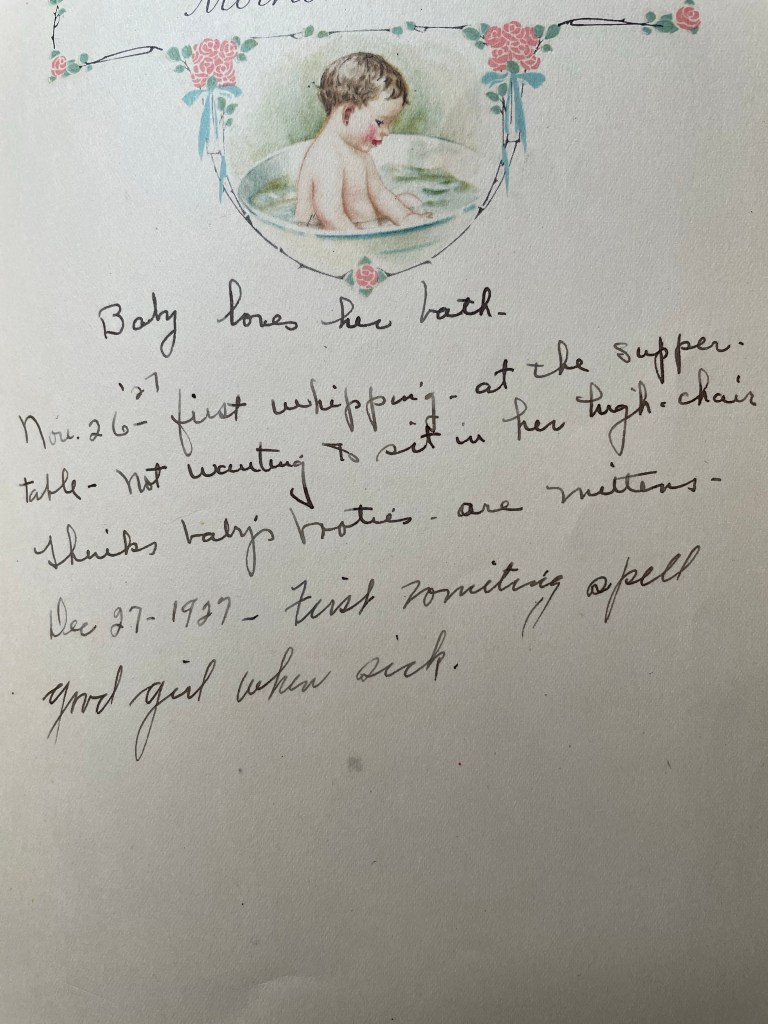 Baby loves her bath-
Nov. 26-'27 first whipping- at the supper-
table- Not wanting to sit in her high-chair
Thinks baby's booties- are mittens-
Dec 27-1927- First vomiting spell
good girl when sick.